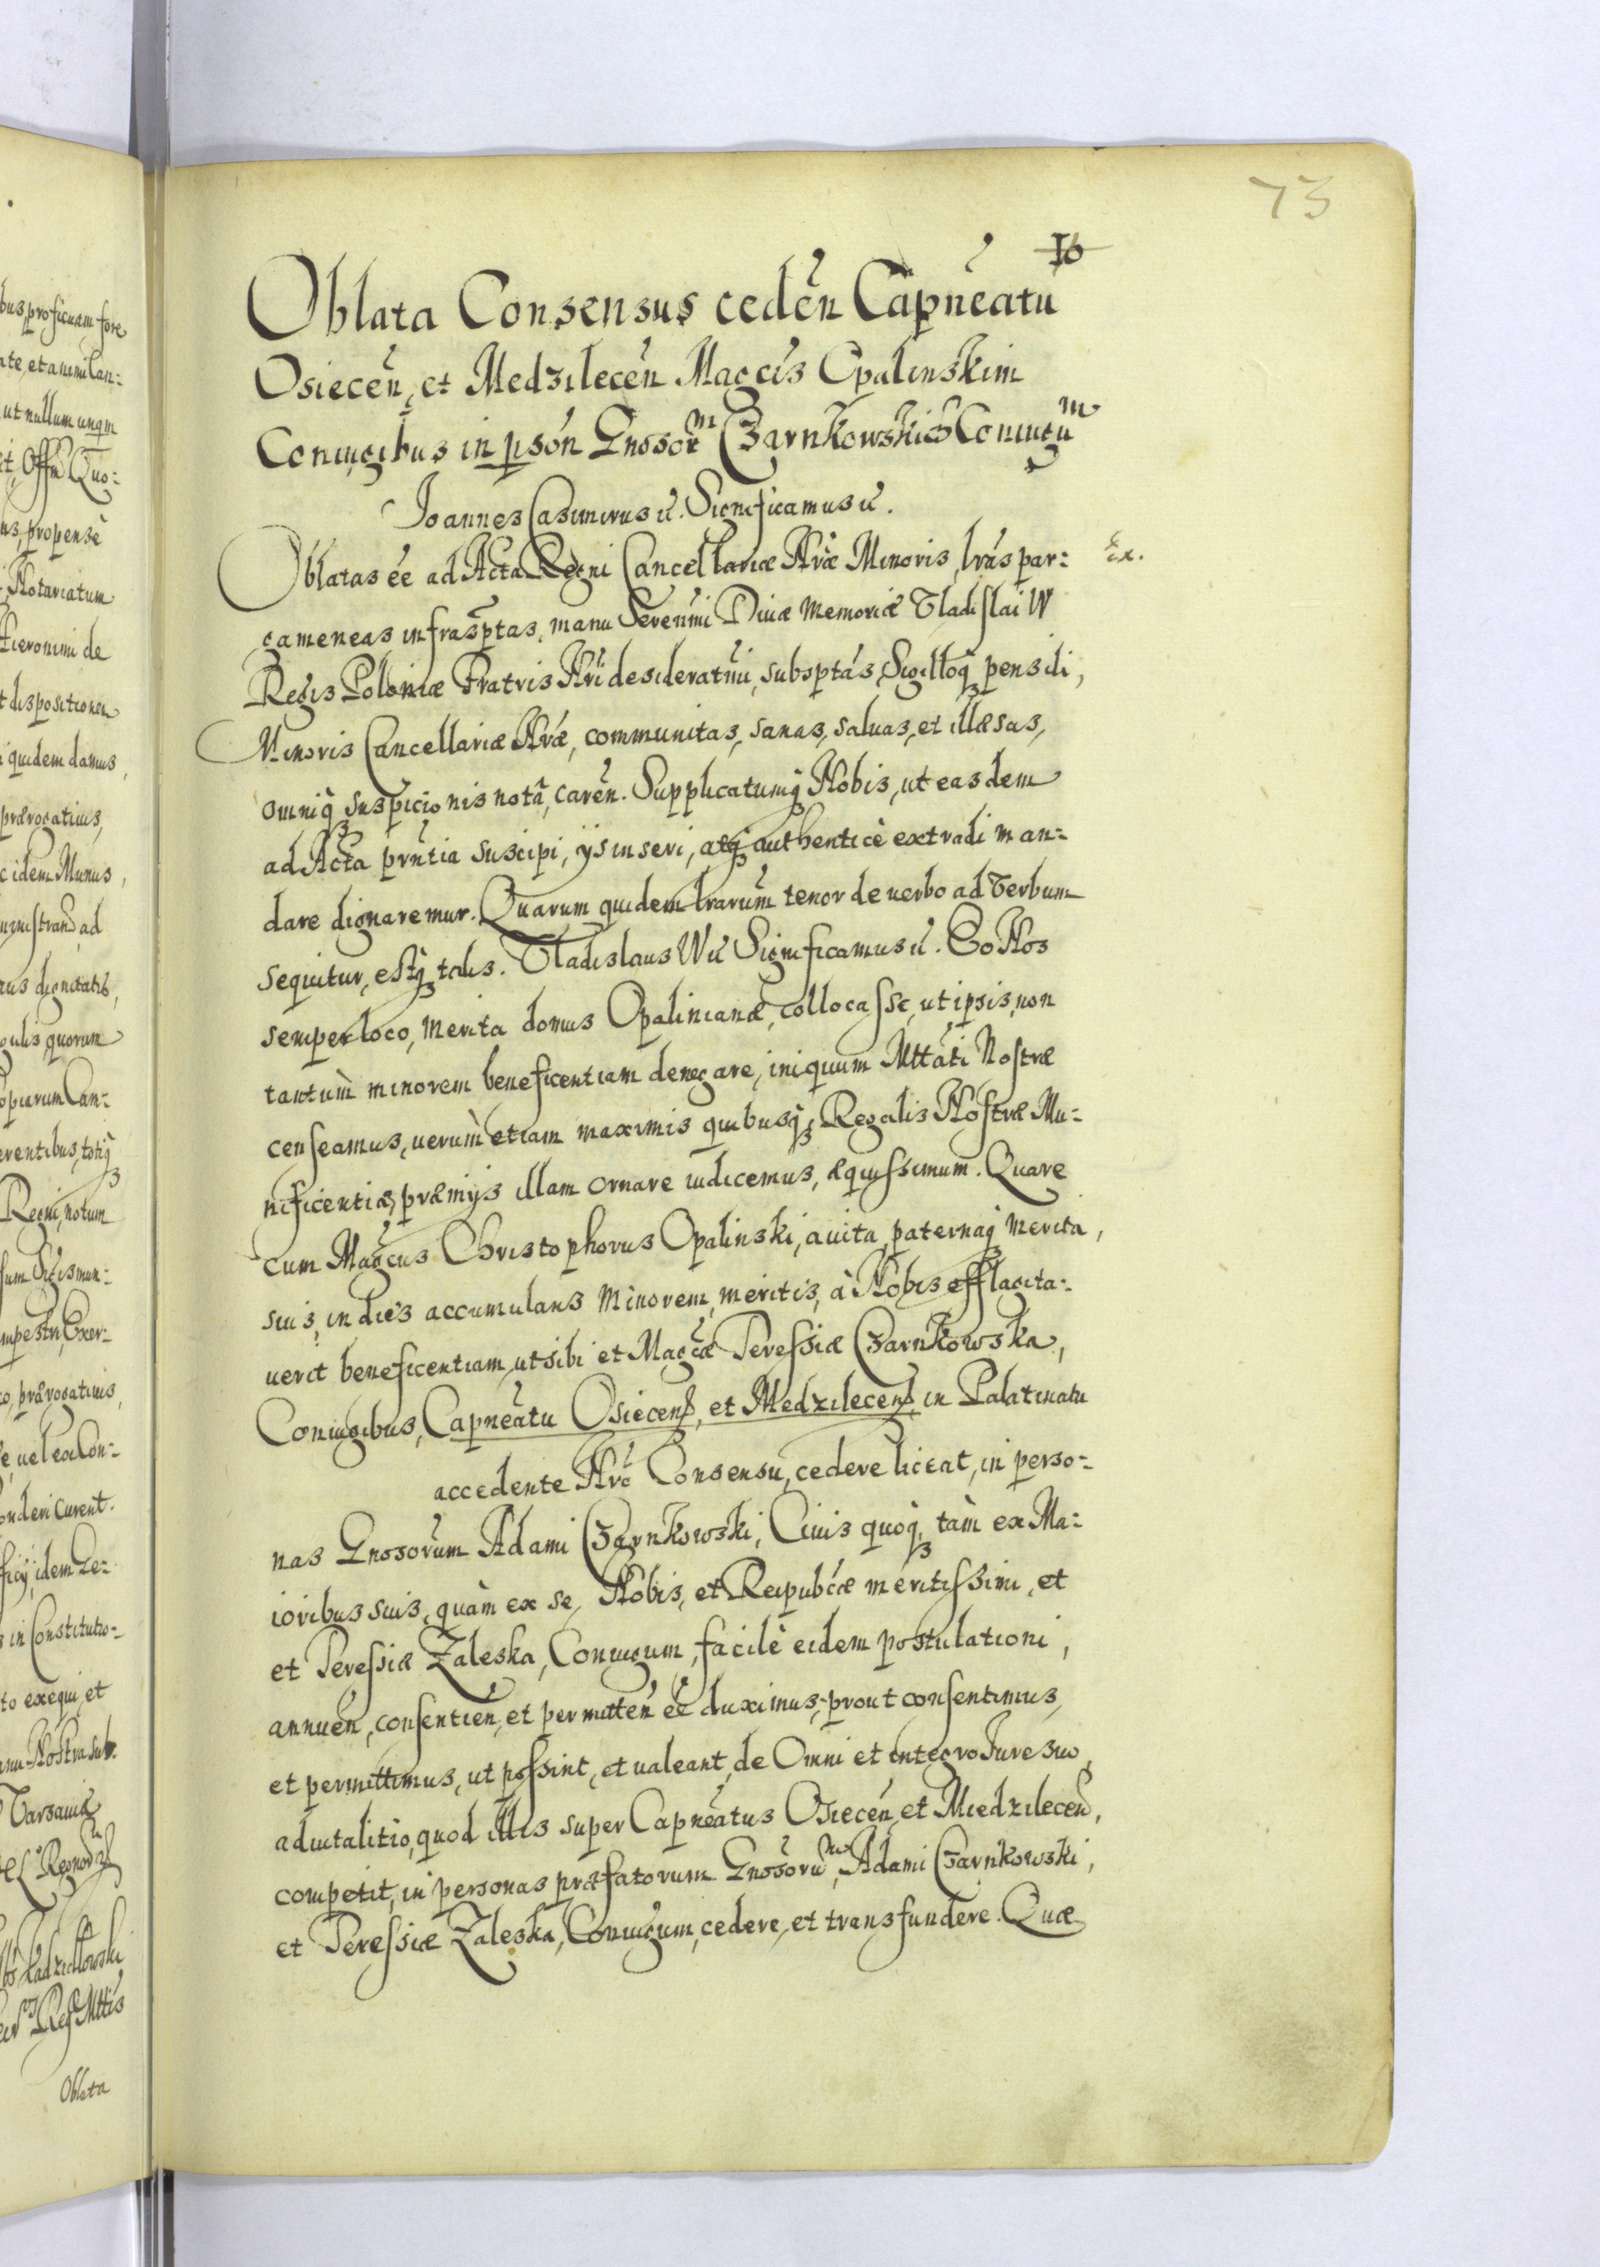 73
16
Oblata Consensus cedeñ Capneatu
Osieceñ, et Medzileceñ Magcis Opalinskim
Coniugibus in psoñ Gnsorm Czarnkowskich Coniugum
Joannes Casimirus ü. Significamus ü.
Oblatas ee ad Acta Regni Cancellariæ Nræ Minoris, lras par-
Ex.
gameneas infrasptas, manu Serenmi Diuæ Memoriæ Vladislai IV
Regis Poloniæ Fratris Nri desideratmi, subsptas, Sigilloq pensili,
Minoris Cancellariæ Nræ, communitas, sanas, saluas, et illæsas,
omniq suspicionis notâ, careñ. Supplicatumq Nobis, ut easdem
ad Acta prñtia suscipi, ijs inseri, atq authenticè extradi man-
dare dignaremur. Quarum quidem lrarum tenor de uerbo ad Verbum
sequitur, estq talis. Vladislaus IV ü Significamus ü. Eo Nos
semper loco, merita domus Opalinianæ, collocasse, ut ipsis, non
tantùm minorem beneficentiam denegare, iniquum Mttati Nostræ
censeamus, uerùm etiam maximis quibusq, Regalis Nostræ Mu-
nificentiæ, præmijs illam ornare iudicemus, æquissimum. Quare
cum Magcus Christophorus Opalinski, auita, paternaq merita,
suis, in dies accumulans Minorem, meritis, à Nobis efflagita-
uerit beneficentiam, ut sibi et Magcæ Teressiæ Czarnkowska,
Coniugibus, Capneatu Osiecens, et Medzilecens, in Palatinatu
accedente Nro Consensu, cedere liceat, in perso-
nas Gnsorum Adami Czarnkowski, Ciuis quoq, tàm ex Ma-
ioribus suis, quàm ex se, Nobis, et Reipubcæ meritissimi, et
et Teressiæ Zaleska, Coniugum, facilè eidem postulationi,
annueñ, consentieñ, et permitteñ ee duximus, prout consentimus,
et permittimus, ut possint, et ualeant, de Omni et integro Jure suo,
aduitalitio, quod illis super Capneatus Osieceñ, et Miedzileceñ,
competit, in personas præfatorum Gnsorum, Adami Czarnkowski,
et Teressiæ Zaleska, Coniugum, cedere, et transfundere. Quæ